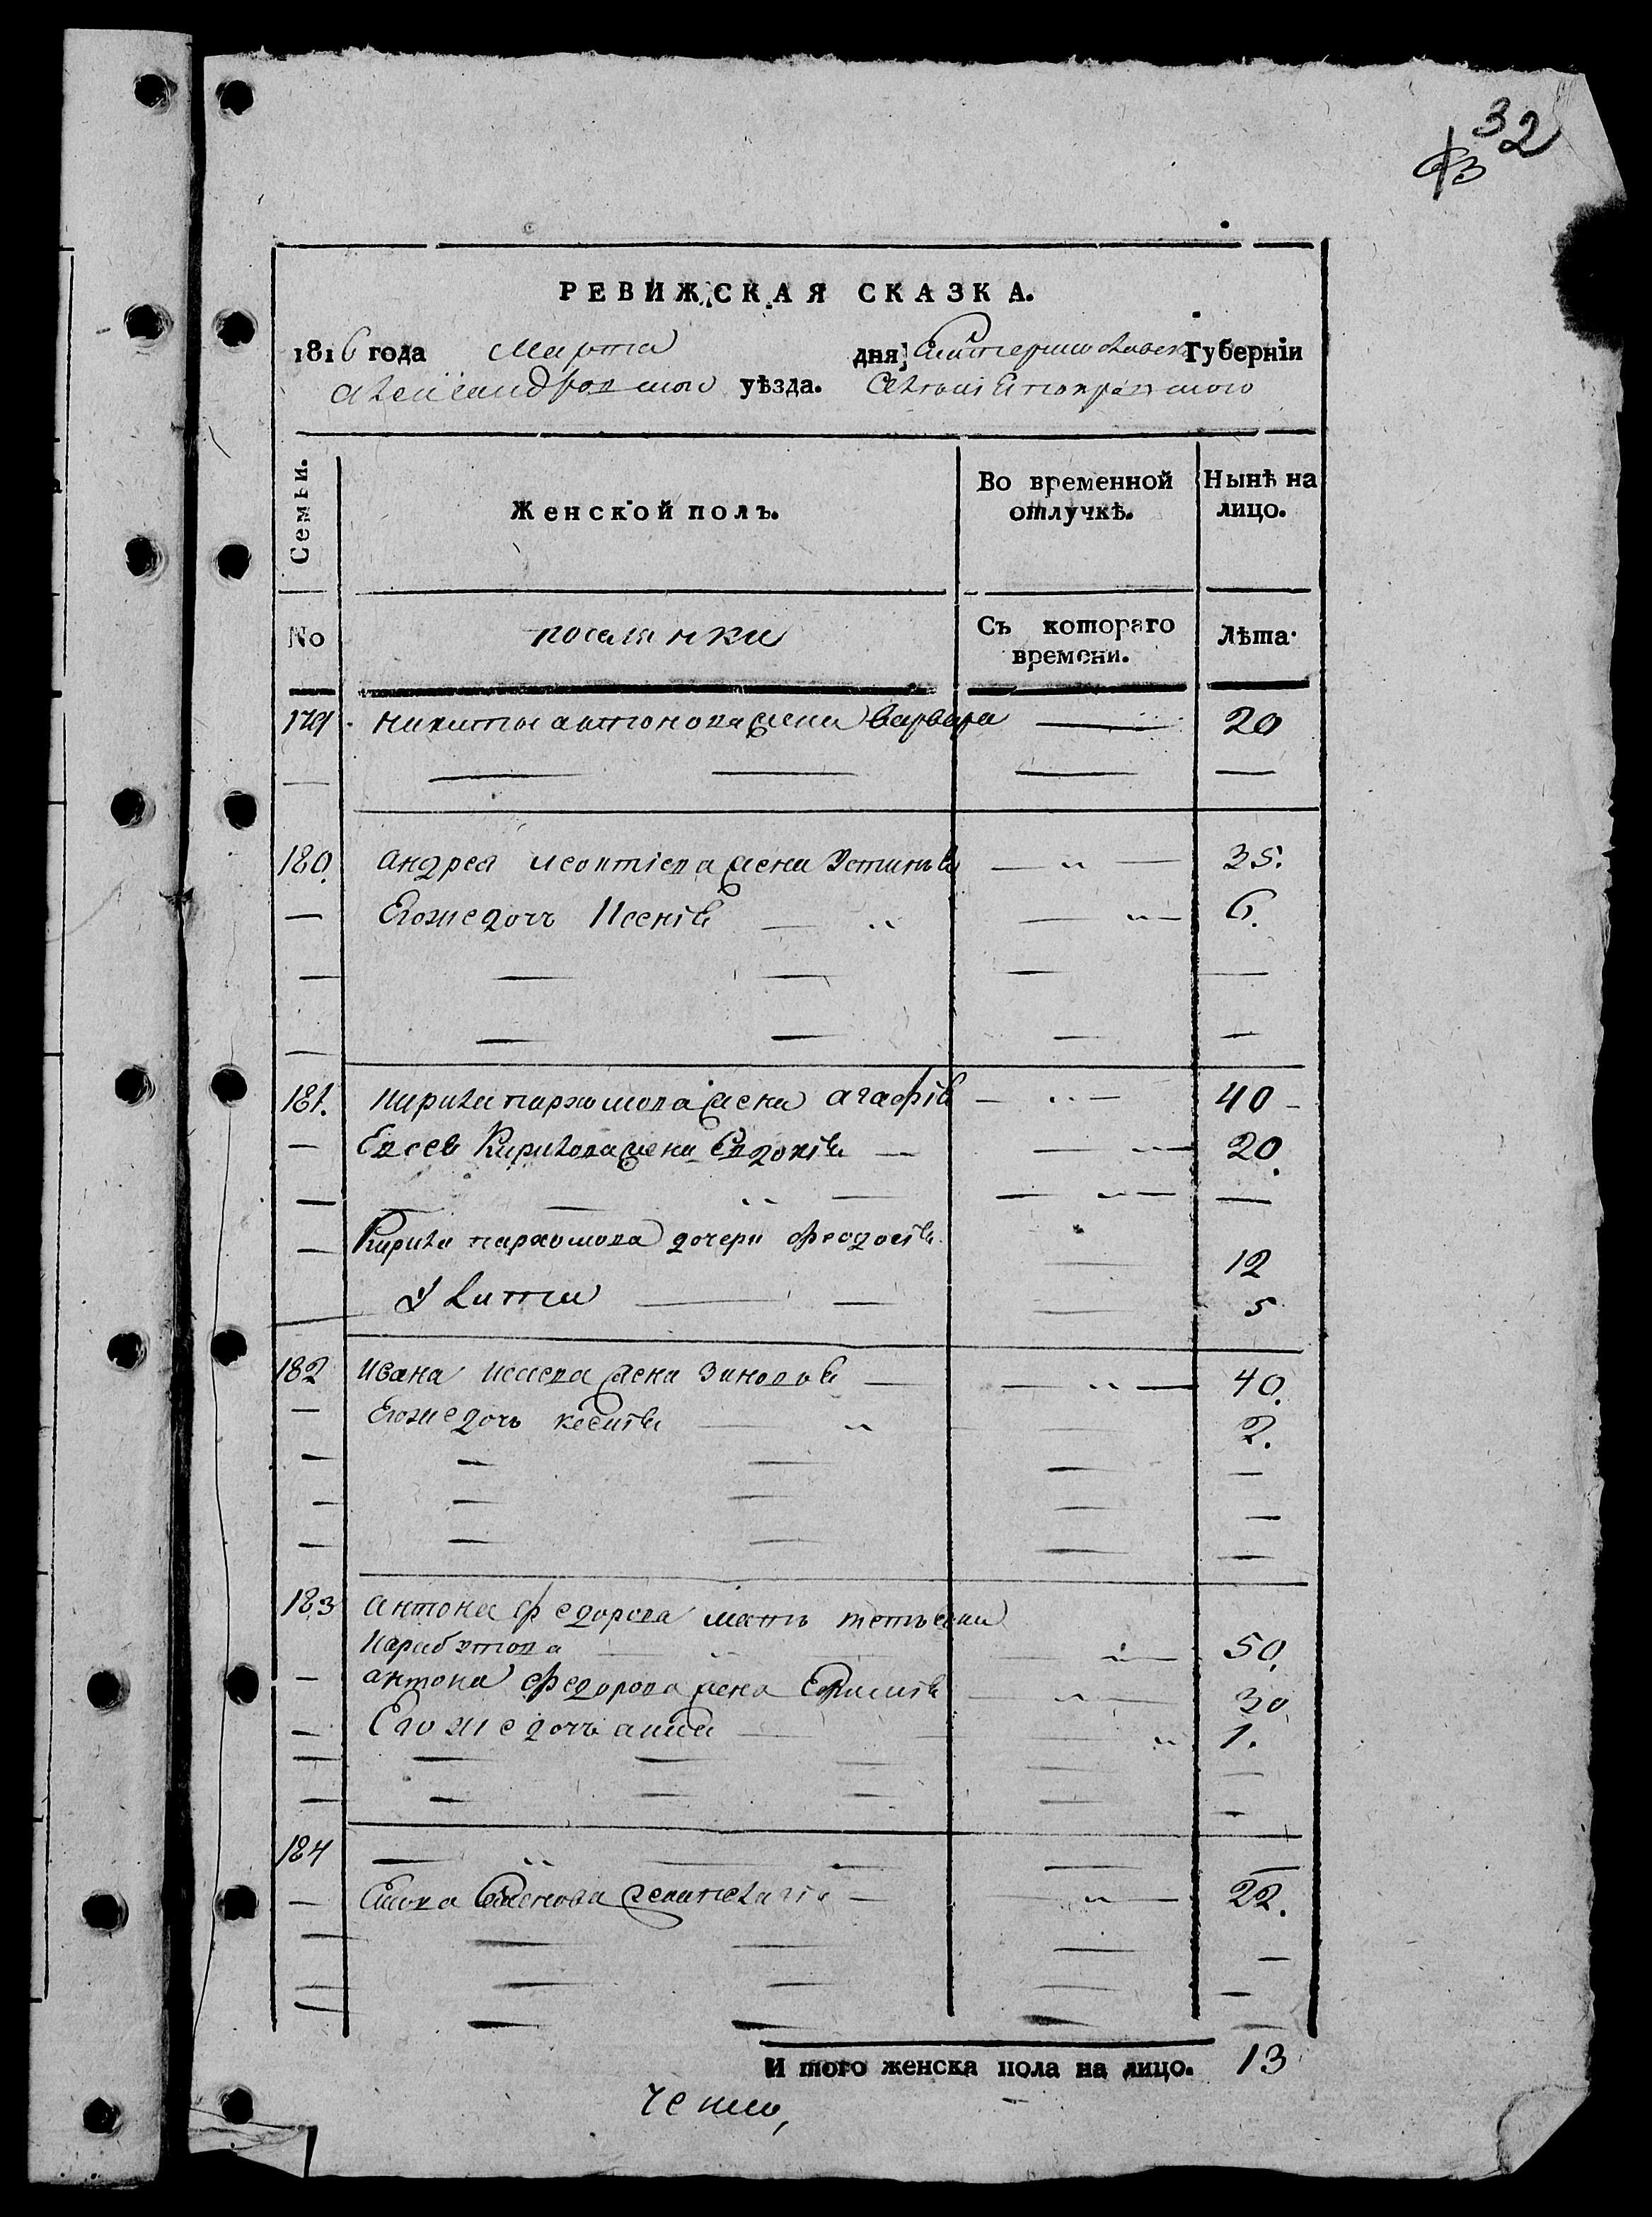 32
РЕВИЖСКАЯ СКАЗКА.
1816 года Марта дня Екатеринославской Губерніи
Александровскаго уѣзда. Селенія
Семьи. Женской полъ. Во временной отлучкѣ. Нынѣ на лицо.
No поселянки Съ котораго времени. Лѣта.
179 Никиты антонова жена варвара — 20
180. Андрея Леонтіева жена Устинья — 35.
— Егоже дочь Ксенія — 6.
181. Кирила пархомова жена агафія — 40
— Евсея Кирилова жена Евдокія — 20.
— Кирила пархомова дочери Феодосія 12
Улита — 5
182 Ивана жена Зиновья — 40.
— Егоже дочь — 2.
183 Антона Федорова мать
— 50.
— антона Федорова жена Евфимія — 30
— Егоже дочь анна — 1.
184 — — —
— Семенова — 22.
И того женска пола на лицо. 13